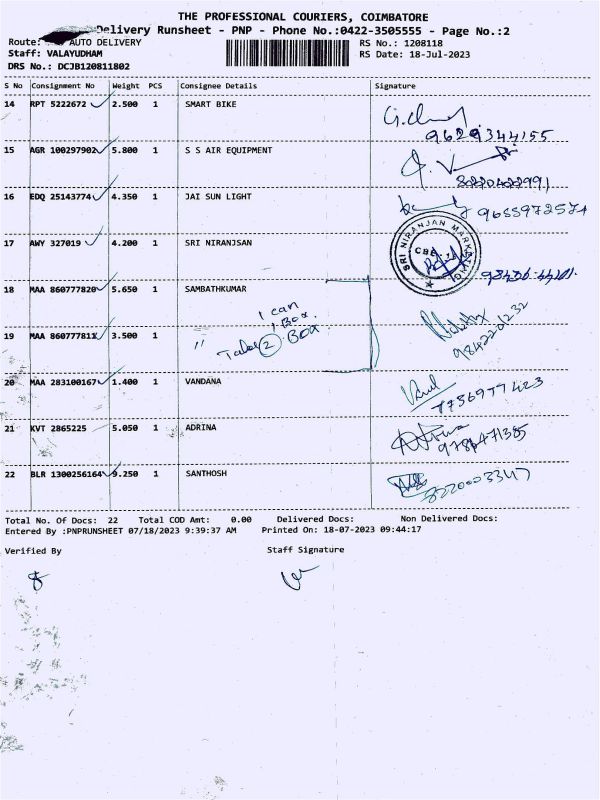 THE PROFESSIONAL COURIERS, COIMBATORE
Delivery Runsheet - PNP - Phone No.:0422-3505555 - Page No.:2
Route: AUTO DELIVERY
RS No.: 1208118
Staff: VALAYUDHAM
RS Date: 18-Jul-2023
DRS No.: DCJB120811802
S No Consignment No Weight PCS Consignee Details Signature
14 RPT 5222672 2.500 1 SMART BIKE
9629344155
15 AGR 100297902 5.800 1 S S AIR EQUIPMENT
16 EDQ 25143774 4.350 1 JAI SUN LIGHT
9655972574
17 AWY 327019 4.200 1 SRI NIRANJSAN
SRI NIRANJAN
CBE
18 MAA 860777820 5.650 1 SAMBATHKUMAR
1 can
1 Box.
19 MAA 860777811 3.500 1 " Total 2 Box
9842201232
20 MAA 283100167 1.400 1 VANDANA
21 KVT 2865225 5.050 1 ADRINA
22 BLR 1300256164 9.250 1 SANTHOSH
8220003347
Total No. Of Docs: 22 Total COD Amt: 0.00 Delivered Docs: Non Delivered Docs:
Entered By :PNPRUNSHEET 07/18/2023 9:39:37 AM Printed On: 18-07-2023 09:44:17
Verified By Staff Signature